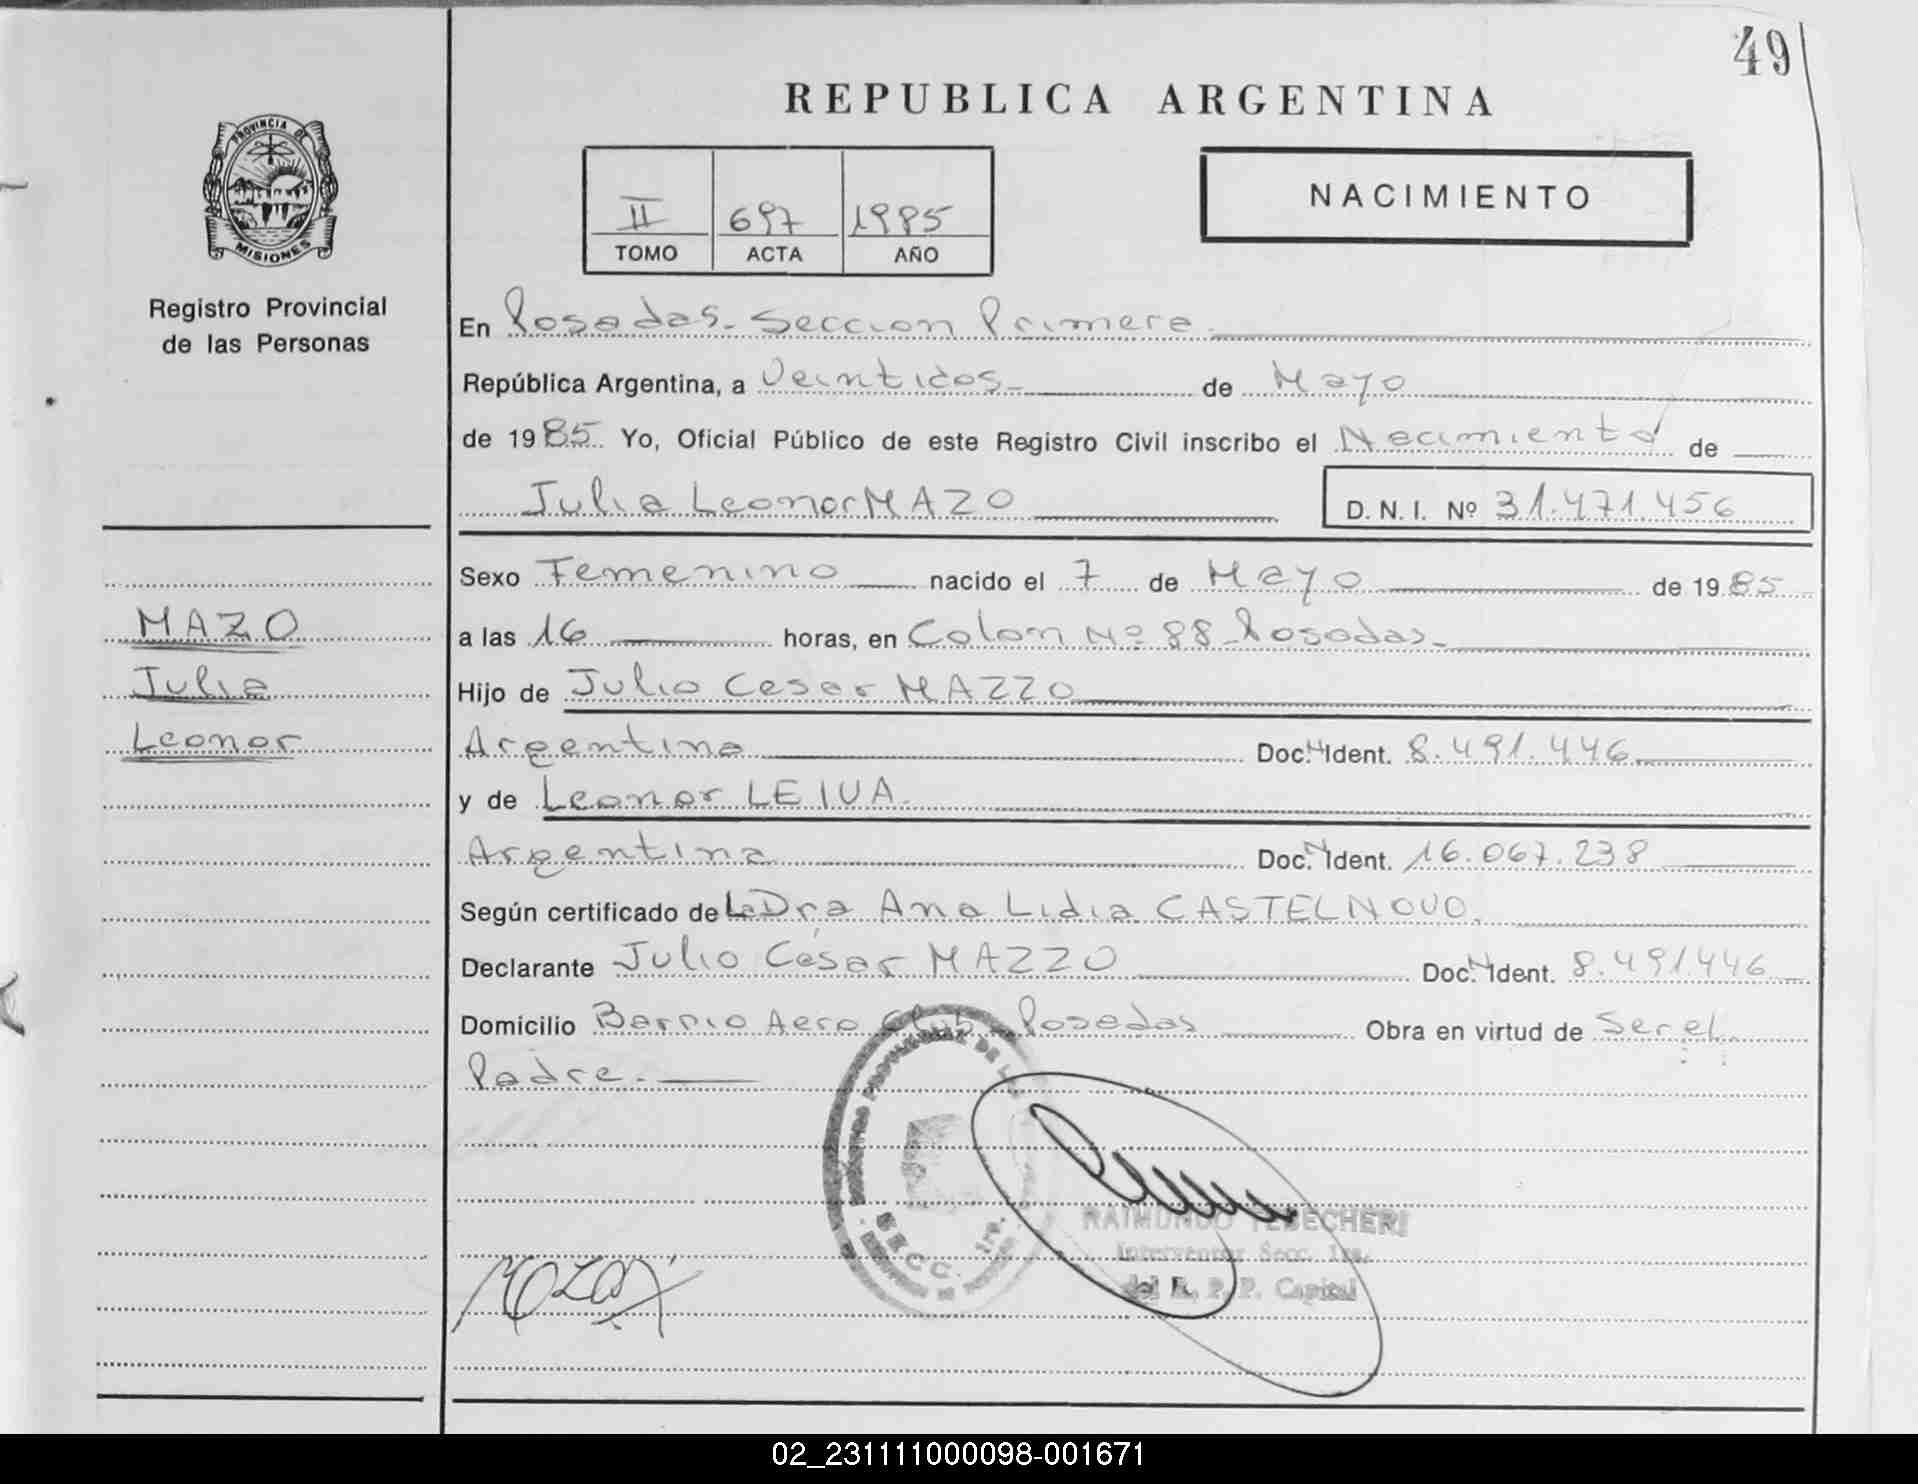 49
REPUBLICA ARGENTINA
PROVINCIA DE
MISIONES
Registro Provincial
de las Personas
II 697 1985
TOMO ACTA AÑO
NACIMIENTO
En Posadas - Seccion Primera.
República Argentina, a Veintidos - de Mayo
de 1985. Yo, Oficial Público de este Registro Civil inscribo el Nacimiento de
Julia Leonor MAZO D. N. I. Nº 31.471.456
Sexo Femenino nacido el 7 de Mayo de 1985
MAZO
a las 16 horas, en Colon Nº 88 - Posadas -
Julia
Hijo de Julio Cesar MAZZO
Leonor
Argentina Doc. Ident. 8.491.446
y de Leonor LEIVA.
Argentina Doc. Ident. 16.067.238
Según certificado de La Dra Ana Lidia CASTELNOVO.
Declarante Julio César MAZZO Doc. Ident. 8.491.446
Domicilio Barrio Aero Club - Posadas Obra en virtud de Ser el
Padre. -
SECC. 1ra.
RAIMUNDO
Interventor Secc. 1ra.
del R. P. P. Capital
02_231111000098-001671